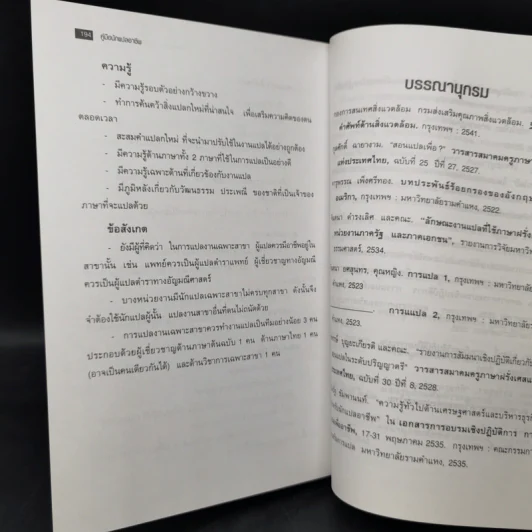 194 คู่มือนักแปลอาชีพ
ความรู้
- มีความรู้รอบตัวอย่างกว้างขวาง
- ทำการค้นคว้าสิ่งแปลกใหม่ที่น่าสนใจ เพื่อเสริมความคิดของตน
ตลอดเวลา
- สะสมคำแปลกใหม่ ที่จะนำมาปรับใช้ในงานแปลได้อย่างถูกต้อง
- มีความรู้ด้านภาษาทั้ง 2 ภาษาที่ใช้ในการแปลเป็นอย่างดี
- มีความรู้เฉพาะด้านที่เกี่ยวข้องกับงานแปล
- มีภูมิหลังเกี่ยวกับวัฒนธรรม ประเพณี ของชาติที่เป็นเจ้าของ
ภาษาที่จะแปลด้วย
ข้อสังเกต
- ยังมีผู้ที่คิดว่า ในการแปลงานเฉพาะสาขา ผู้แปลควรมีอาชีพอยู่ใน
สาขานั้น เช่น แพทย์ควรเป็นผู้แปลตำราแพทย์ ผู้เชี่ยวชาญทางอัญมณี
ควรเป็นผู้แปลตำราทางอัญมณีศาสตร์
- บางหน่วยงานมีนักแปลเฉพาะสาขาไม่ครบทุกสาขา ดังนั้นจึง
จำต้องใช้นักแปลผู้นั้น แปลงานสาขาอื่นที่ตนไม่ถนัดด้วย
- การแปลงานเฉพาะสาขาควรทำงานแปลเป็นทีมอย่างน้อย 3 คน
ประกอบด้วยผู้เชี่ยวชาญด้านภาษาต้นฉบับ 1 คน ด้านภาษาไทย 1 คน
(อาจเป็นคนเดียวกันได้) และด้านวิชาการเฉพาะสาขา 1 คน
บรรณานุกรม
กองการสนเทศสิ่งแวดล้อม กรมส่งเสริมคุณภาพสิ่งแวดล้อม.
คำศัพท์ด้านสิ่งแวดล้อม. กรุงเทพฯ : 2541.
ฉายางาม. "สอนแปลเพื่อ?" วารสารสมาคมครูภาษา
แห่งประเทศไทย, ฉบับที่ 25 ปีที่ 27, 2527.
เพ็งศรีทอง. บทประพันธ์ร้อยกรองของอังกฤษ
อเมริกา, กรุงเทพฯ : มหาวิทยาลัยรามคำแหง, 2522.
ดำรงเลิศ และคณะ. "ลักษณะงานแปลที่ใช้ภาษาฝรั่ง
หน่วยงานภาครัฐ และภาคเอกชน", รายงานการวิจัยมหาวิท
ธรรมศาสตร์, 2534.
ยศสุนทร, คุณหญิง. การแปล 1, กรุงเทพฯ : มหาวิทยาลัย
2523
การแปล 2, กรุงเทพฯ : มหาวิทยา
2523.
บุญระเกียรติ และคณะ. "รายงานการสัมมนาเชิงปฏิบัติเกี่ยวกับ
แปลในระดับปริญญาตรี" วารสารสมาคมครูภาษาฝรั่งเศสแ
ประเทศไทย, ฉบับที่ 30 ปีที่ 8, 2528.
"ความรู้ทั่วไปด้านเศรษฐศาสตร์และบริหารธุรกิ
นักแปลอาชีพ" ใน เอกสารการอบรมเชิงปฏิบัติการ กา
อาชีพ, 17-31 พฤษภาคม 2535. กรุงเทพฯ : คณะกรรมกา
การแปล มหาวิทยาลัยรามคำแหง, 2535.